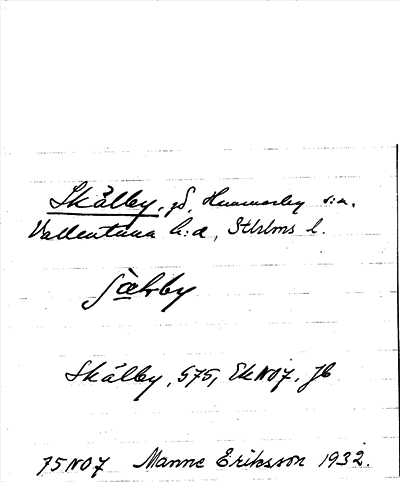 Skålby, gd, Hammarby s:n,
Vallentuna h:d, Sthlms l.
Skålby, 575, Ek NO7, Jb
75NO7 Manne Eriksson 1932.